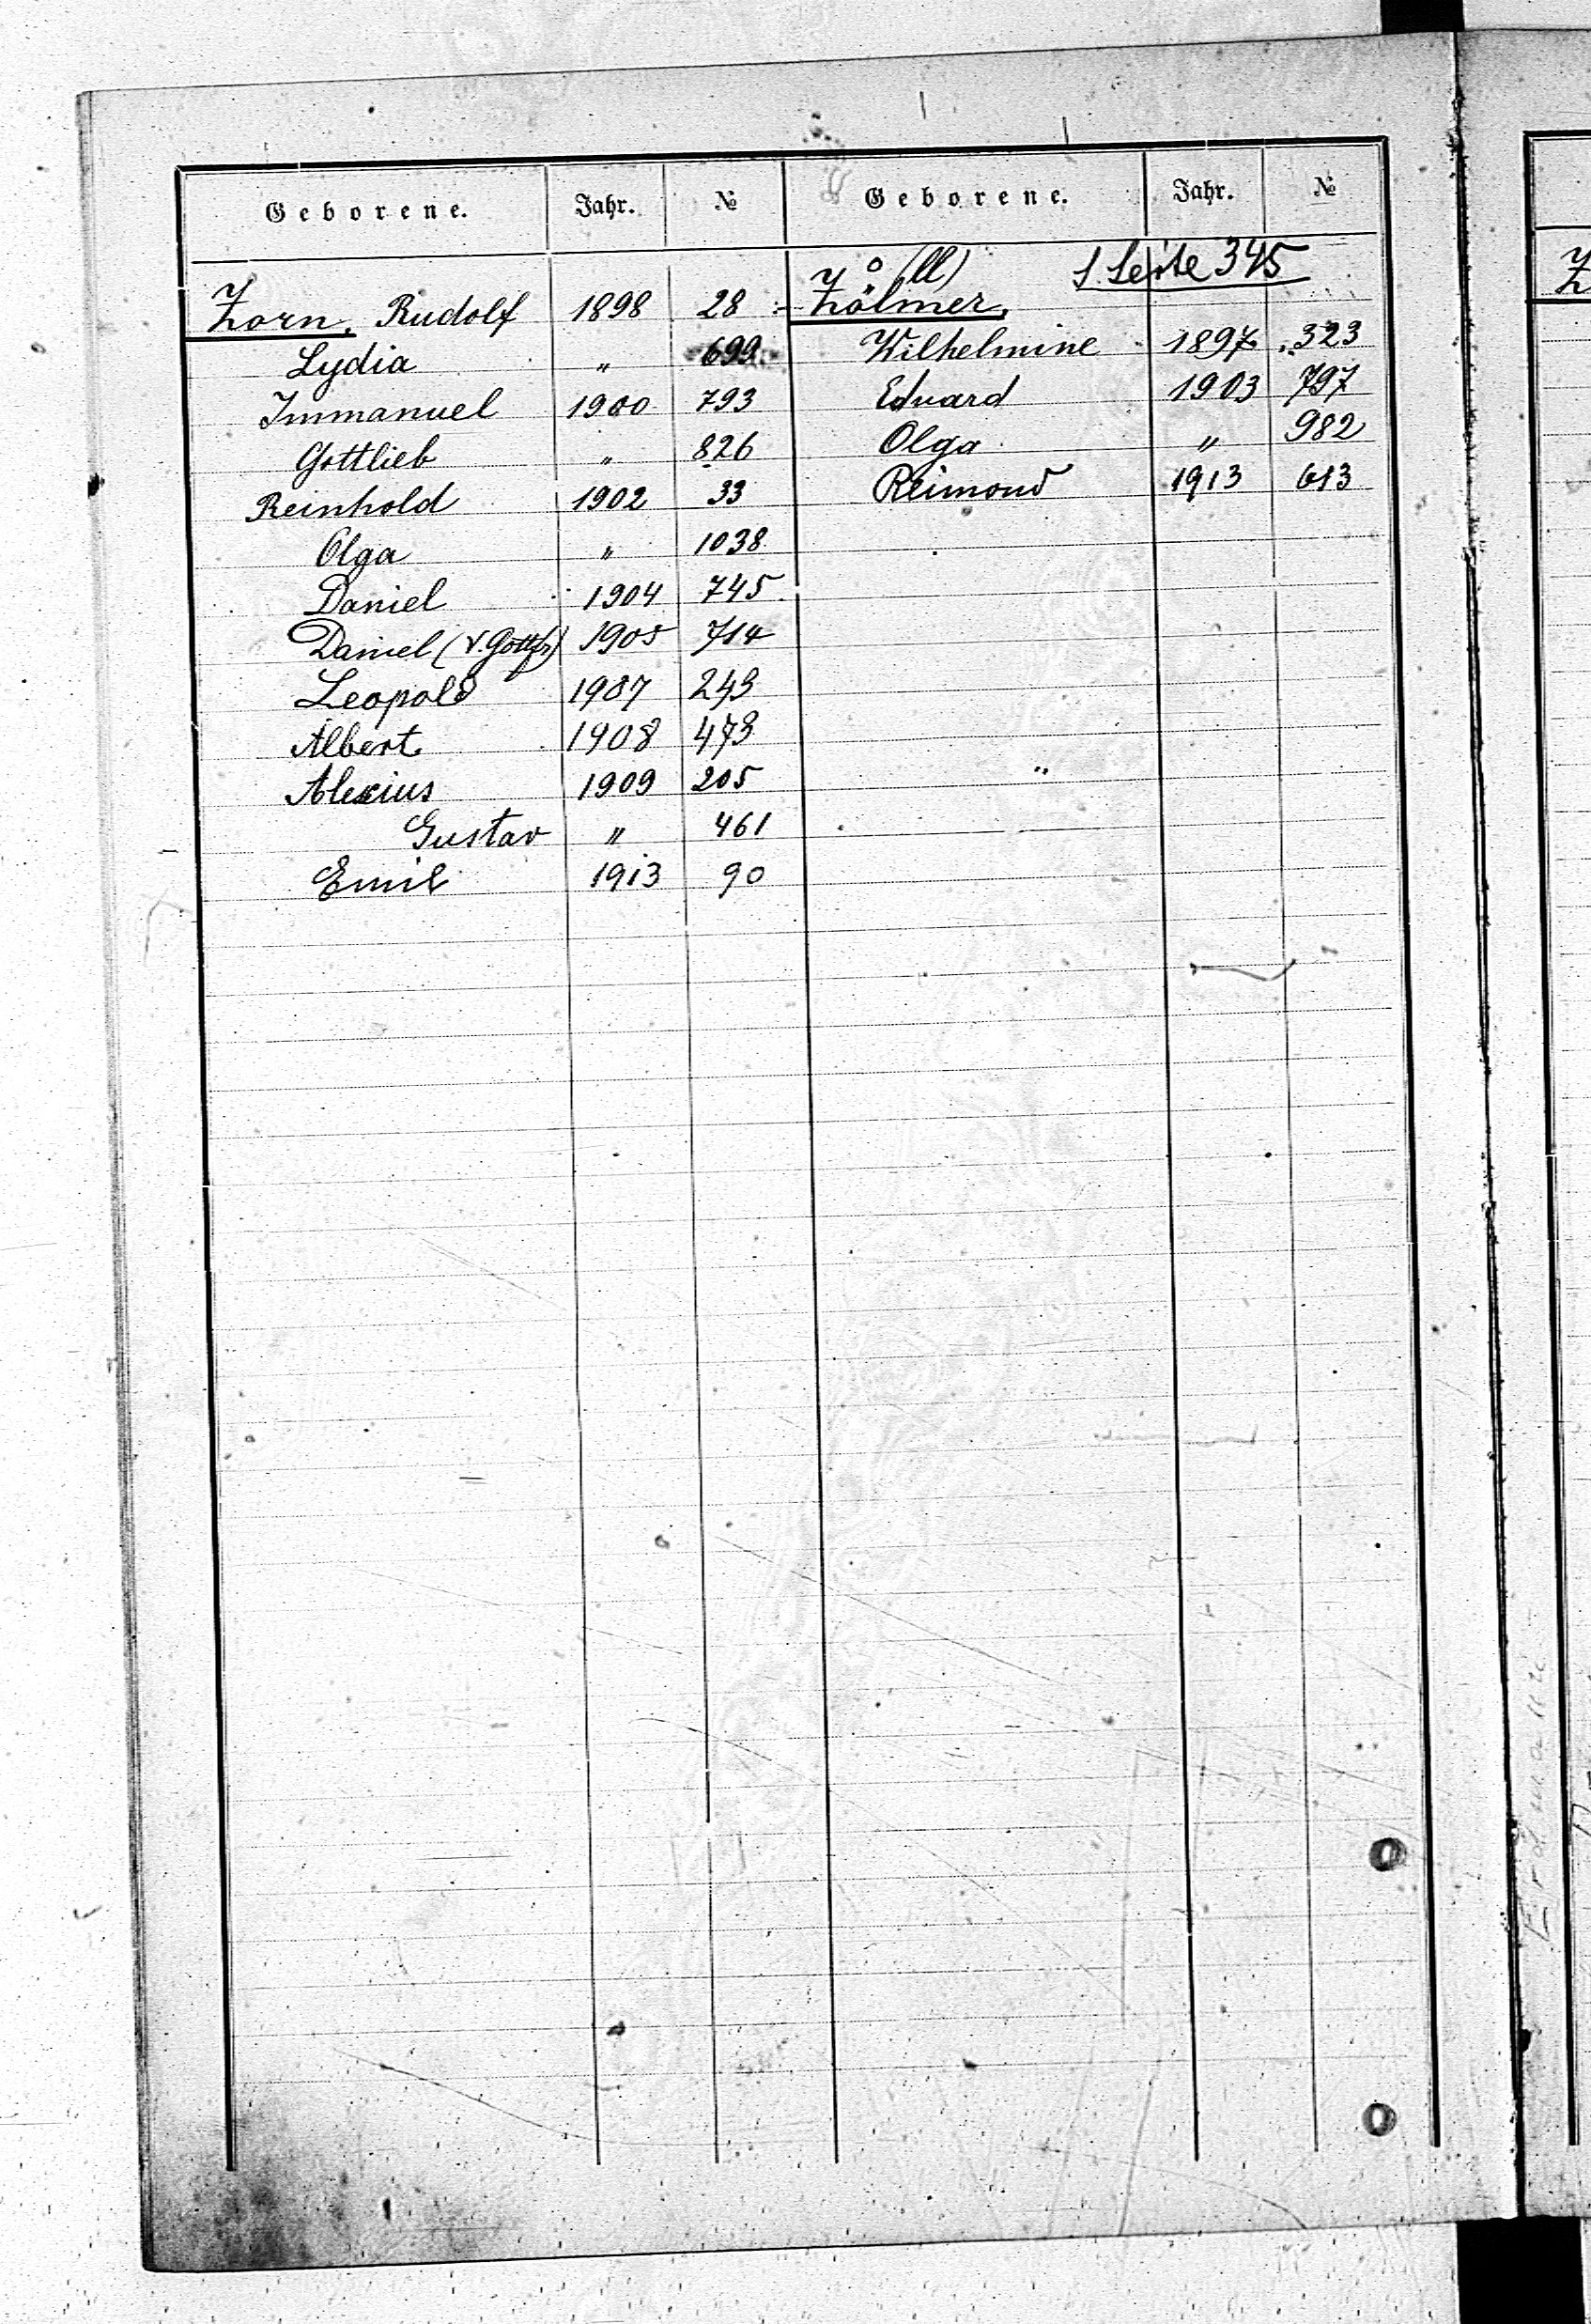 Geborene. Jahr. №
Zorn, Rudolf 1898 28
Lydia " 699
Immanuel 1900 793
Gottlieb " 826
Reinhold 1902 33
Olga " 1038
Daniel 1904 745
Daniel (v. Gottfr) 1905 714
Leopold 1907 243
Albert 1908 473
Alexius 1909 205
Gustav " 461
Emil 1913 90
Geborene. Jahr. №
(ll) S. Seite 345
Zölmer,
Wilhelmine 1897 323
Eduard 1903 797
Olga " 982
Reimond 1913 613